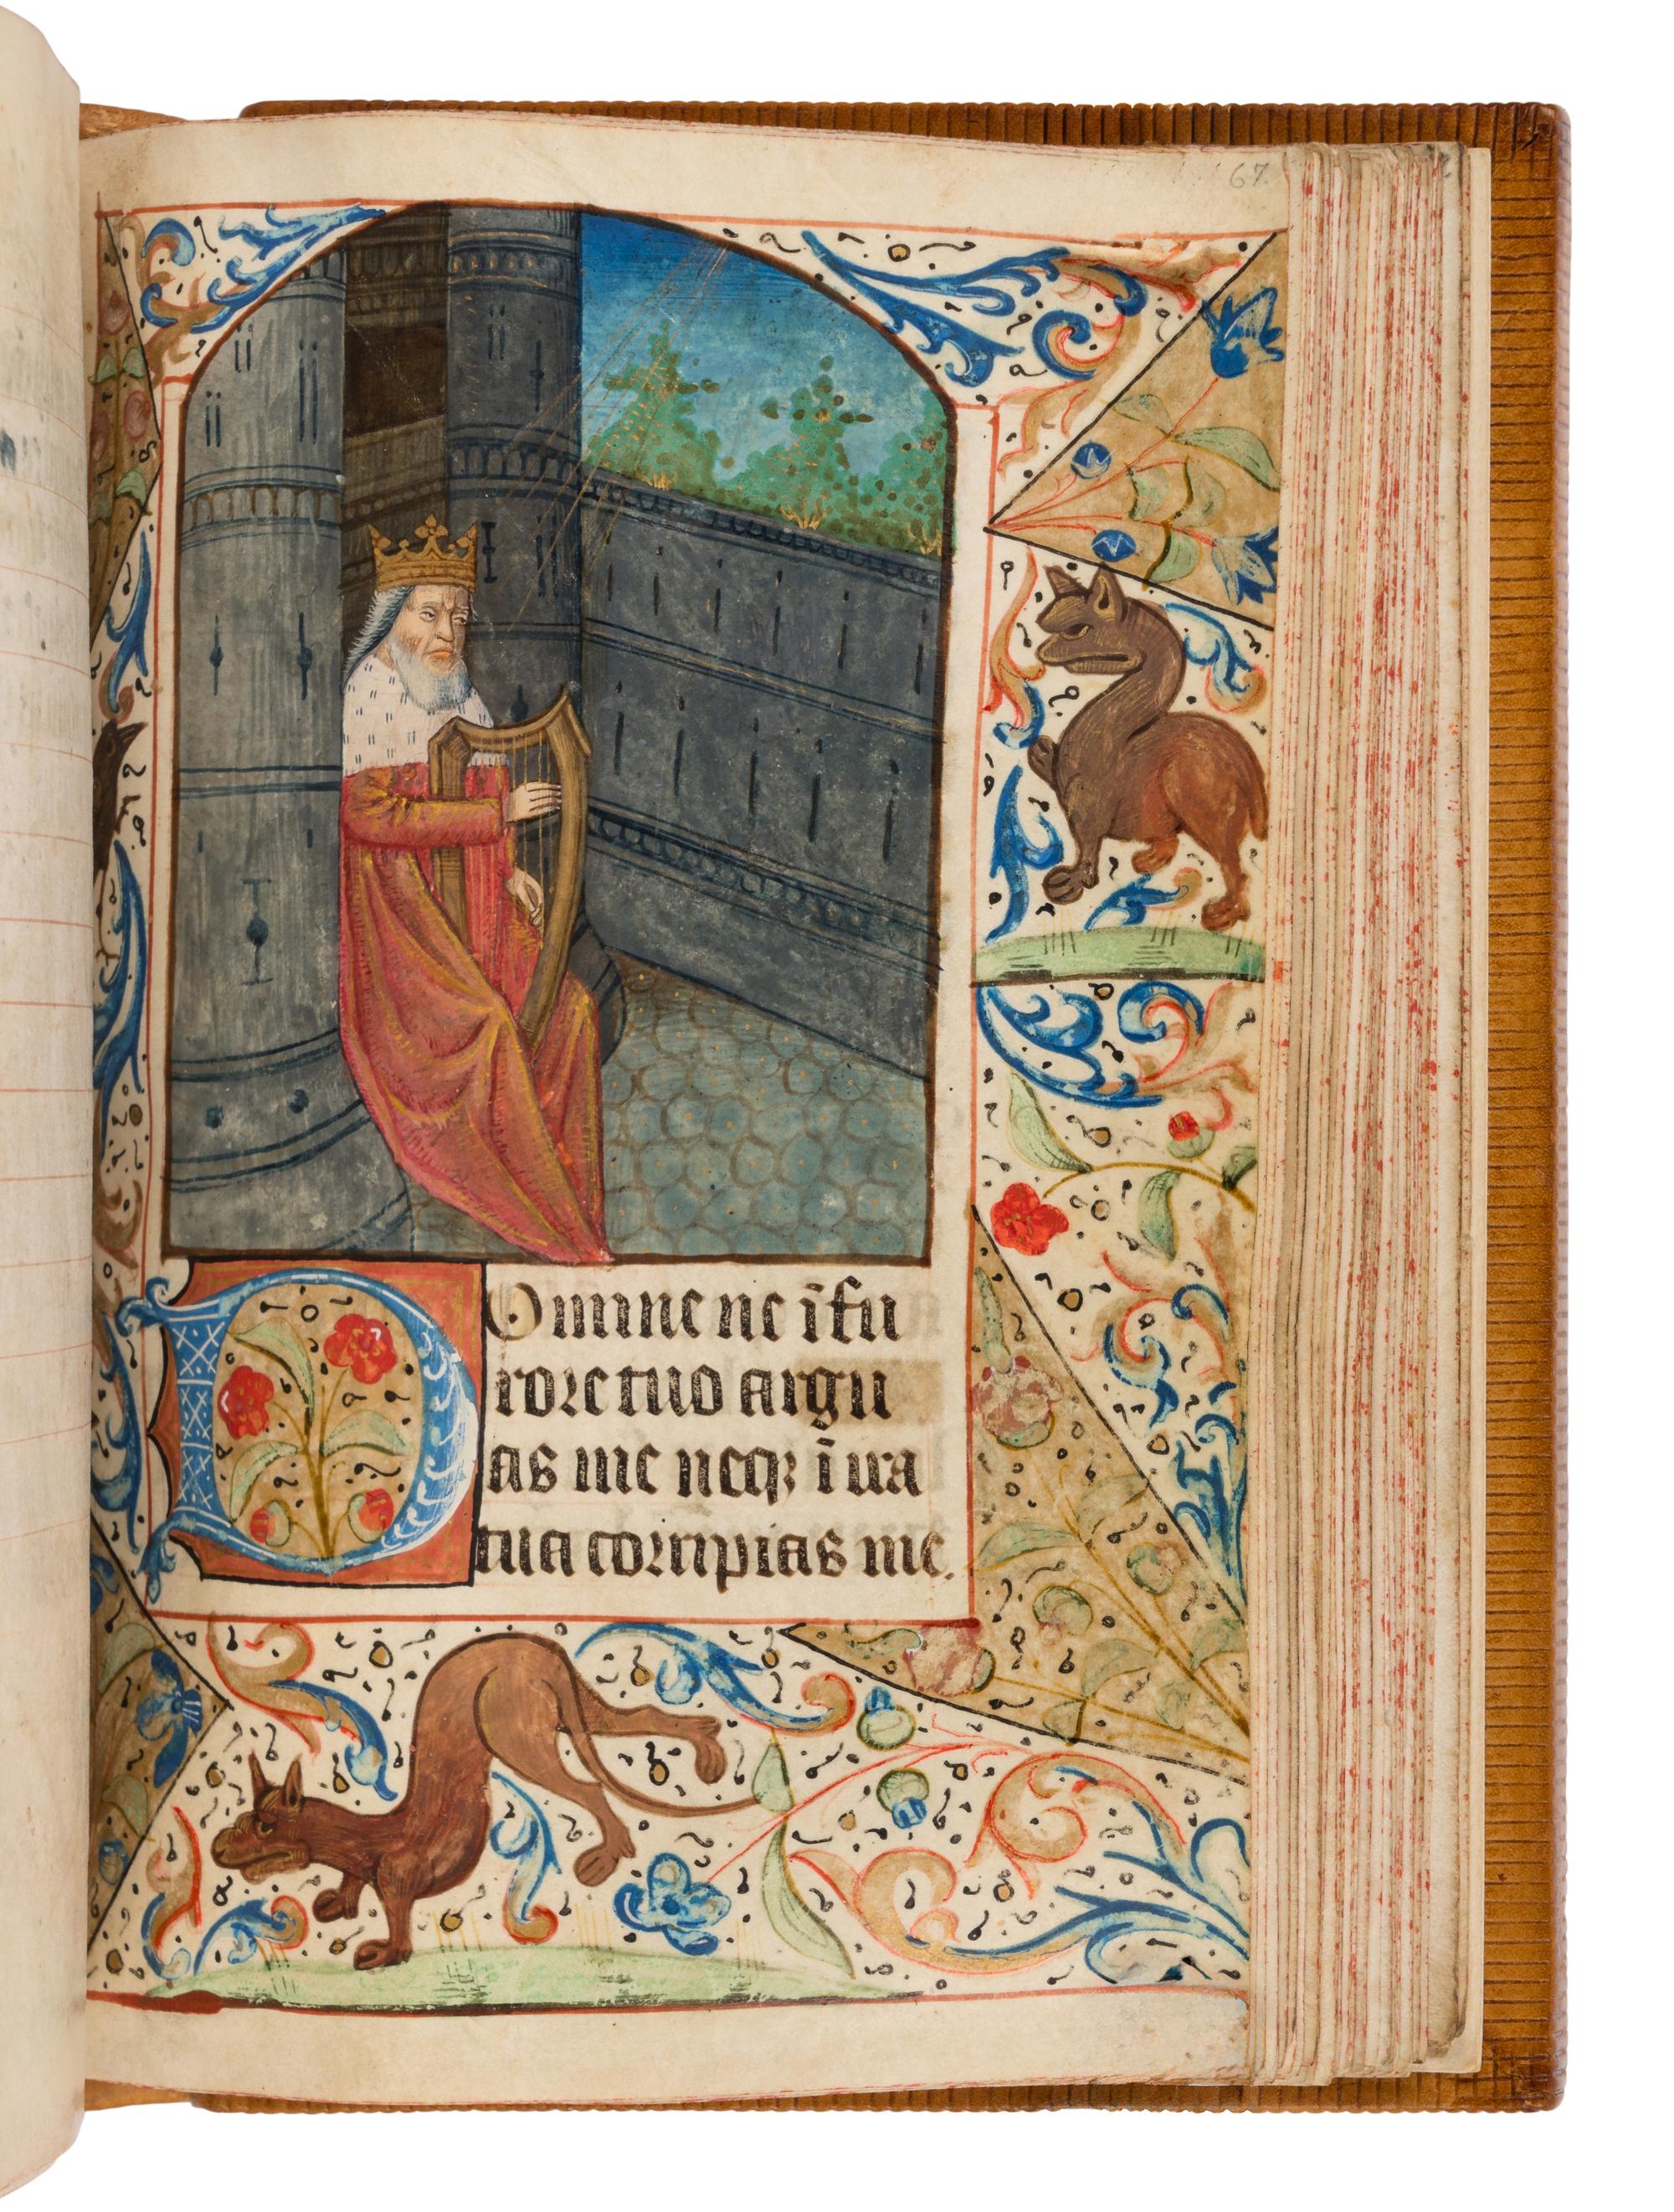 67.
Domine ne ī fu
rore tuo argu
as me neqꝫ ī ira
tua corripias me.